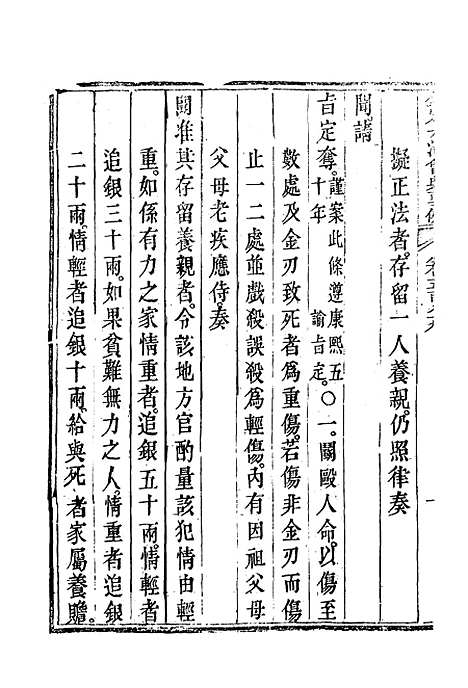 擬正法者。存留一人養親。仍照律奏
聞。請
旨定奪。謹案此條遵康熙五十年諭旨定。○一。鬭毆人命。以傷至
數處及金刃致死者為重傷。若傷非金刃而傷
止一二處並戲殺誤殺為輕傷。內有因祖父母
父母老疾應侍。奏
聞准其存留養親者。令該地方官酌量該犯情由輕
重。如係有力之家情重者。追銀五十兩。情輕者
追銀三十兩。如果貧難無力之人。情重者追銀
二十兩。情輕者追銀十兩。給與死者家屬養贍。